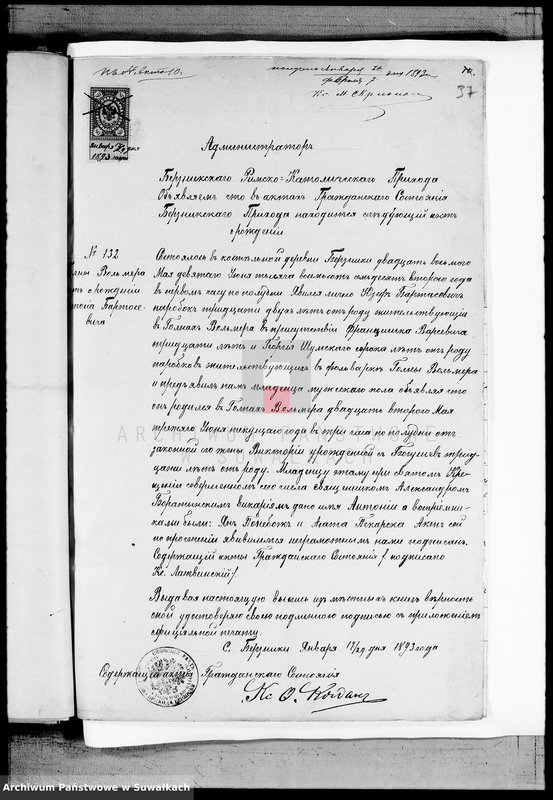 къ № Акта 10.
получено Января 20 дня 1893
37
Января дня
1893 года
Администраторъ
Бержникскаго Римско-Католическаго Прихода
Объявляемъ что въ актахъ Гражданскаго Состоянія
Бержникскаго Прихода находится слѣдующій актъ
о рожденіи
№ 132
Вольмера
о рожденіи
Бартосе-
вича
Состоялось въ костельной деревни Бержники двадцать восьмого
Мая девятаго Іюня тысяча восемьсотъ семдесятъ второго года
въ первомъ часу по полудни Явился лично Іозефъ Бартасовичъ
паробокъ тридцати двухъ лѣтъ отъ роду жительствующій
въ Голнахъ Вольмера въ присутствіи Францишка Варсевича
тридцати лѣтъ и Георгія Шумскаго сорока лѣтъ отъ роду
паробковъ жительствующихъ въ фольваркѣ Голны Вольмера
и предъявилъ намъ младенца мужескаго пола объявляя что
онъ родился въ Голнахъ Вольмера двадцать второго Мая
третьяго Іюня текущаго года въ три часа по полудни отъ
законной его жены Викторіи урожденной трид-
цати лѣтъ отъ роду. Младенцу этому при святомъ Кре-
щеніи совершенномъ сего числа священникомъ Александромъ
Боратынскимъ викаріемъ дано имя Антоній а воспріемни-
ками были: Янъ и Агата Пекарска Актъ сей
по прочтеніи явившимся неграмотнымъ нами подписанъ.
Содержащій акты Гражданскаго Состоянія / подписано
Кс. Латвинскій /.
Выдавая настоящую выпись изъ мѣстныхъ книгъ вѣрность
оной удостовѣряю своею подлинною подписью съ приложеніемъ
офиціяльной печати.
С. Бержники Января 17/29 дня 1893 года
Содержащій акты Гражданскаго Состоянія
Кс О.
ARCHIWUM PAŃSTWOWE
W SUWAŁKACH
Archiwum Państwowe w Suwałkach